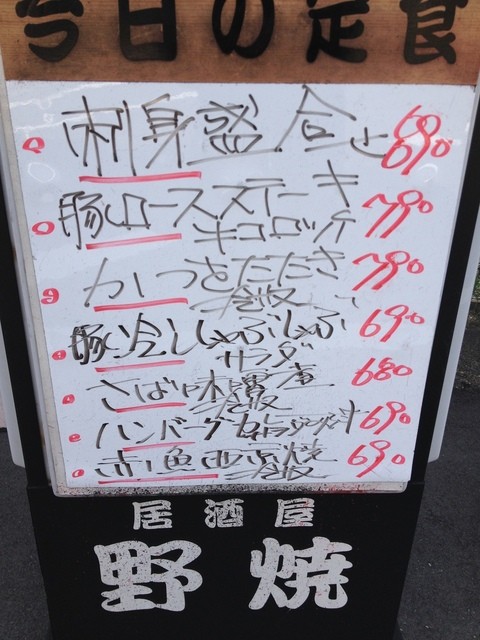 今日の定食
刺身盛合と 690
豚ロースステーキ 790
キコロッケ
かつおたたき 790
定食
豚冷しゃぶしゃぶ 690
サラダ
さば味噌煮 680
定食
ハンバーグ 690
赤魚西京焼 690
定食
居酒屋
野焼